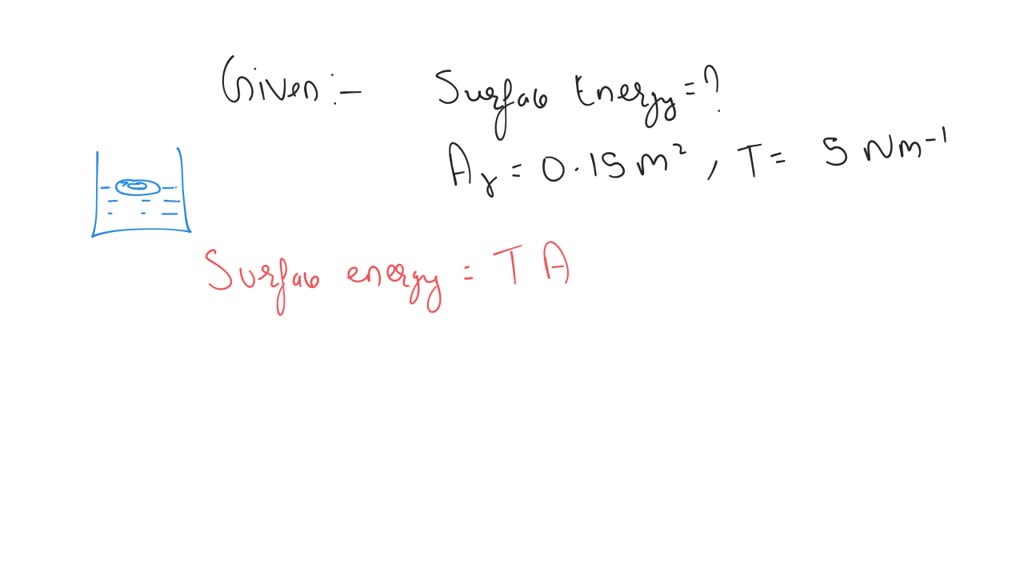 Given :- Surface Energy = ?
Aᵧ = 0.15 m², T = 5 Nm⁻¹
Surface energy = T A